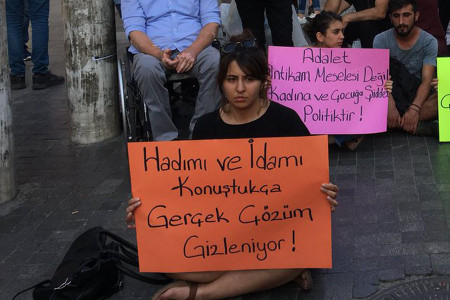 Adalet
İntikam Meselesi Değil
Kadına ve Çocuğa Şiddet
Politiktir !
Hadımı ve İdamı
Konuştukça
Gerçek Çözüm
Gizleniyor !